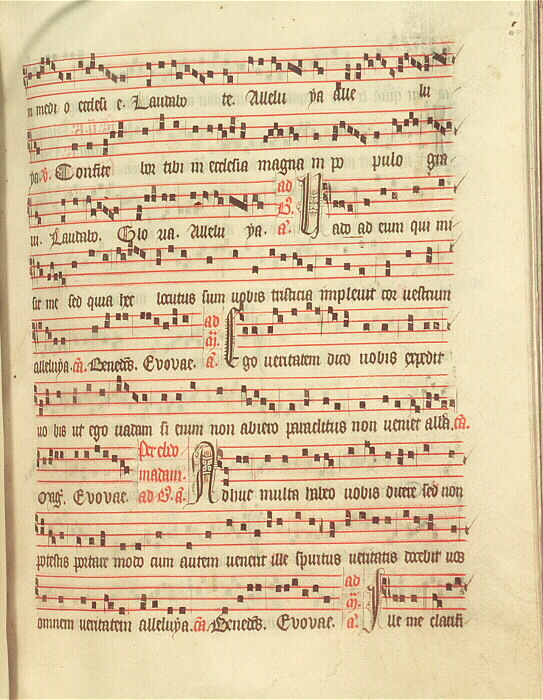 in medi o eccleſi e. Laudabo te. Allelu ya alle lu
ya. V. Confite bor tibi in eccleſia magna in po pulo gra
ui. Laudabo. Glo ria. Allelu ya. ad B. a. Uado ad eum qui mi
ſit me ſed quia hec locutus ſum uobis triſticia impleuit cor ueſtrum
alleluya. ca. Benedcs. Evovae. ad m. a. Ego ueritatem dico uobis expedit
uo bis ut ego uadam ſi enim non abiero paraclitus non ueniet alla. ca.
Evovae. Per ebdo madam. ad B. a. Adhuc multa habeo uobis dicere ſed non
poteſtis portare modo cum autem venerit ille ſpiritus ueritatis docebit uos
omnem ueritatem alleluya. ca. Benedcs. Evovae. ad m. a. Ille me clarifi